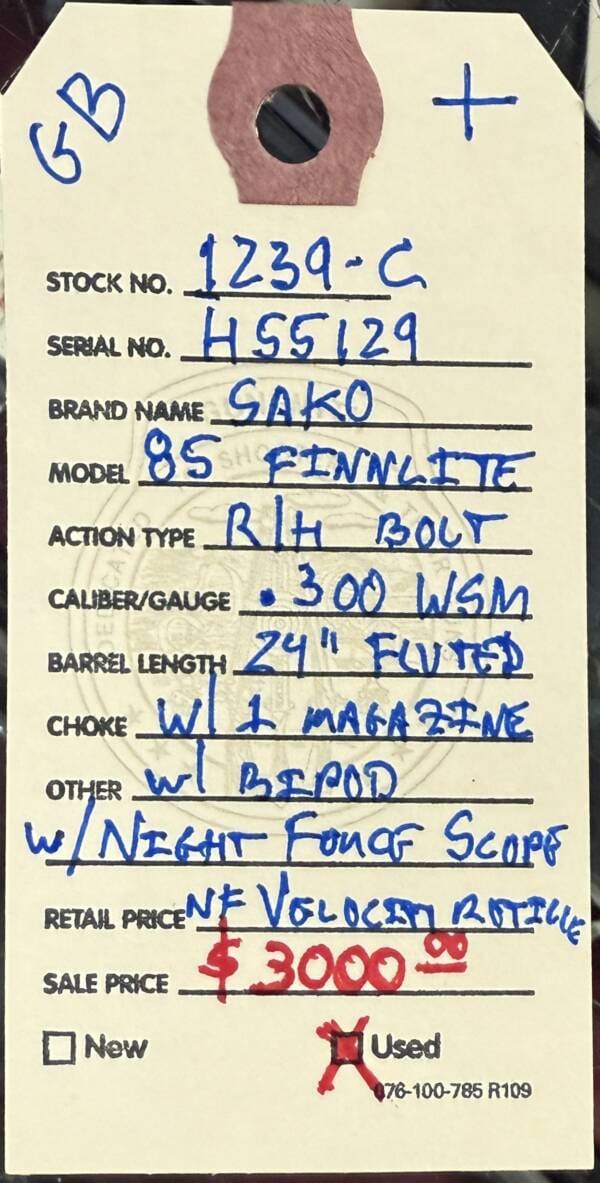 GB +
STOCK NO. 1239-C
SERIAL NO. H55129
BRAND NAME SAKO
MODEL 85 FINNLITE
ACTION TYPE R/H BOLT
CALIBER/GAUGE .300 WSM
BARREL LENGTH 24" FLUTED
CHOKE W/ 1 MAGAZINE
OTHER W/ BIPOD
W/ NIGHT FORCE SCOPE
RETAIL PRICE NF VELOCITY RETICLE
SALE PRICE $3000.00
New Used
076-100-785 R109